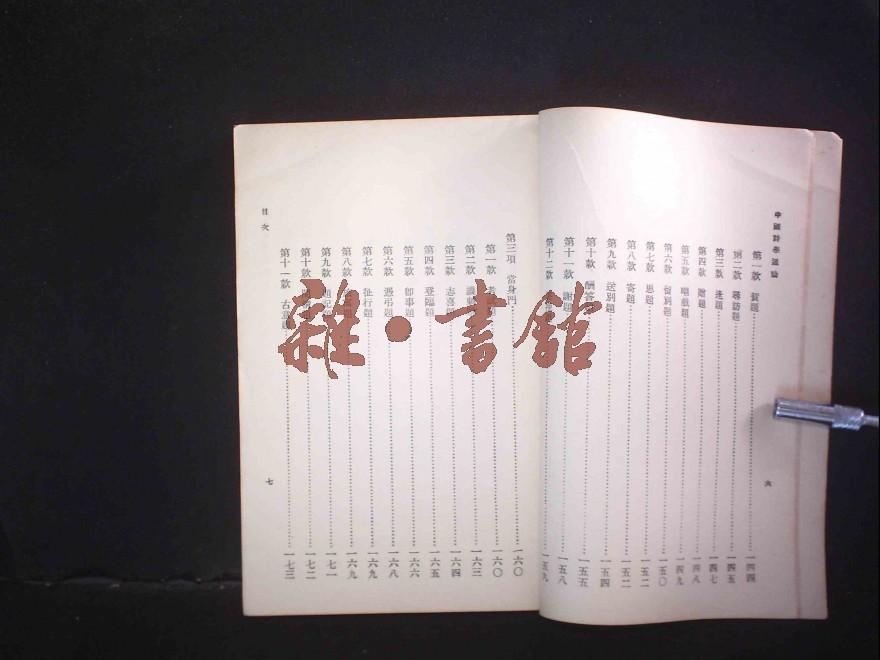 中國詩學通論
第一款 賀題 一四四
第二款 尋訪題 一四五
第三款 送題 一四七
第四款 贈題 一四八
第五款 嘲戲題 一四九
第六款 留別題 一五〇
第七款 思題 一五二
第八款 寄題 一五二
第九款 送別題 一五四
第十款 酬答 一五五
第十一款 謝題 一五八
第十二款 一五九
六
第三項 當身門 一六〇
第一款 一六〇
第二款 一六三
第三款 志喜 一六四
第四款 登臨題 一六五
第五款 即事題 一六六
第六款 憑弔題 一六八
第七款 征行題 一六九
第八款 一六九
第九款 題記題 一七一
第十款 一七二
第十一款 古意題 一七三
目次
七
雜·書館